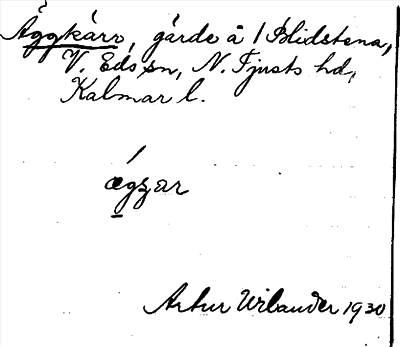 Äggkärr, gärde å 1 Blidstena,
V. Eds sn, N. Tjusts hd,
Kalmar l.
ǽgʒar
Artur Wilander 1930